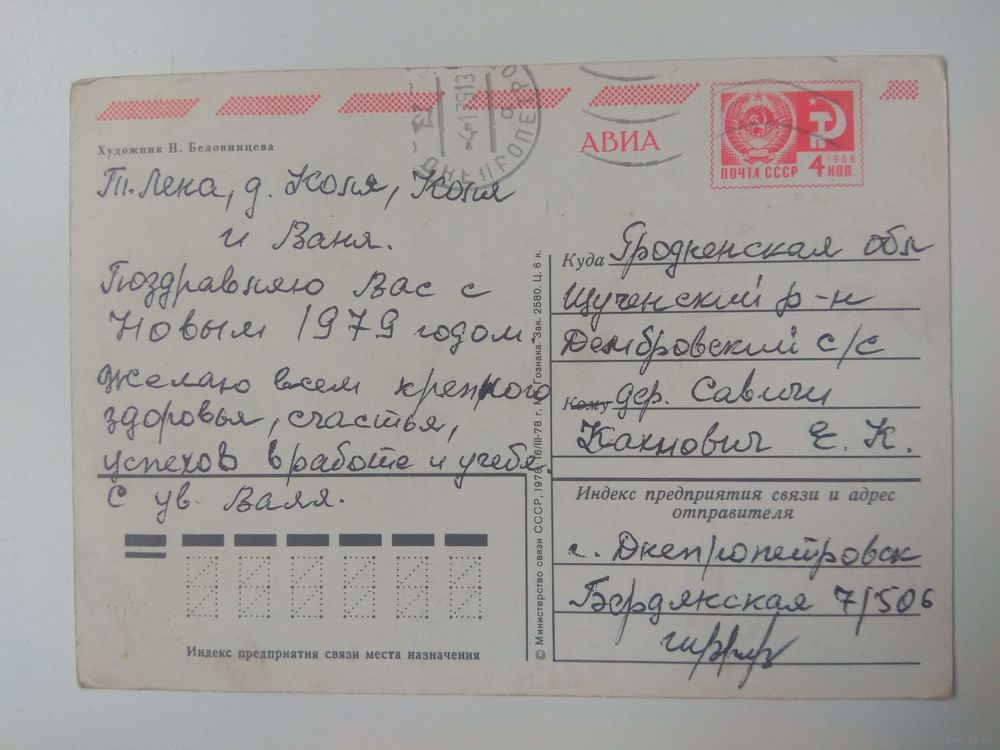 АВИА
ПОЧТА СССР 4 КОП.
1966
ДНЕПРОПЕТРО
-4-1-7913
Художник Н. Беловинцева
Т. Лена, д. Коля, Коля
и Ваня.
Поздравляю Вас с
Новым 1979 годом.
Желаю всем крепкого
здоровья, счастья,
успехов в работе и учебе.
С ув. Валя.
Индекс предприятия связи места назначения
© Министерство связи СССР, 1978. 16/III-78 г. М. Гознака. Зак. 2580. Ц. 6 к.
Куда Гродненская обл
Щученский р-н
Дембровский с/с
Кому дер. Савичи
Кахнович Е. К.
Индекс предприятия связи и адрес
отправителя
г. Днепропетровск
Бердянская 7/506